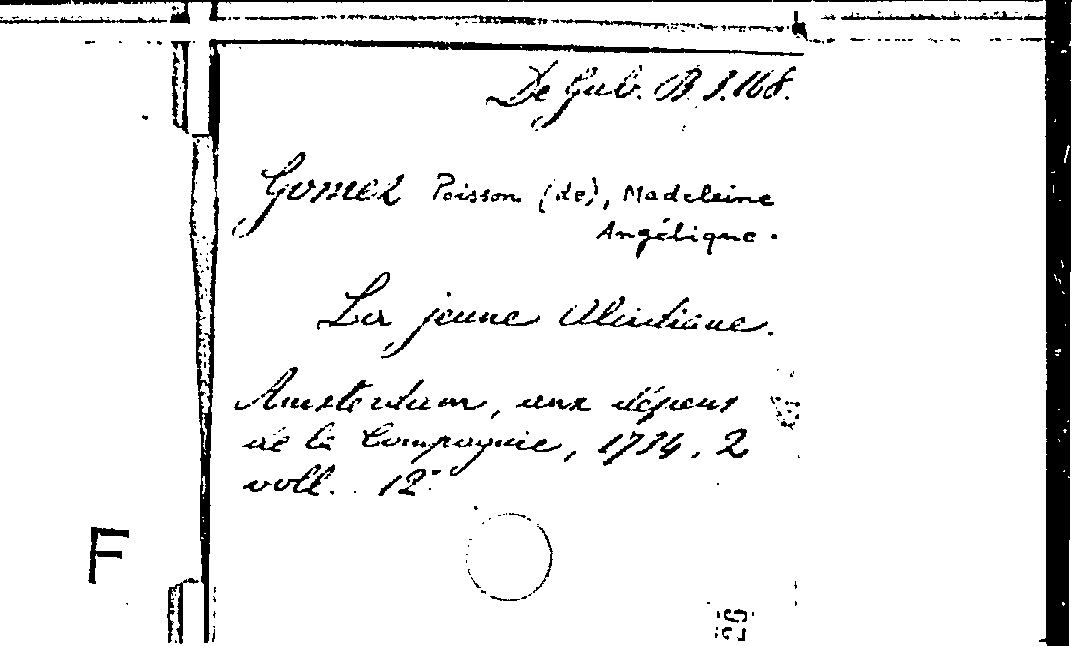 De Gub. B. I. 168.
Gomez Poisson (de), Madeleine
Angélique.
La jeune Alcidiane.
Amsterdam, aux dépens
de la Compagnie, 1734. 2
voll. 12°
F
26